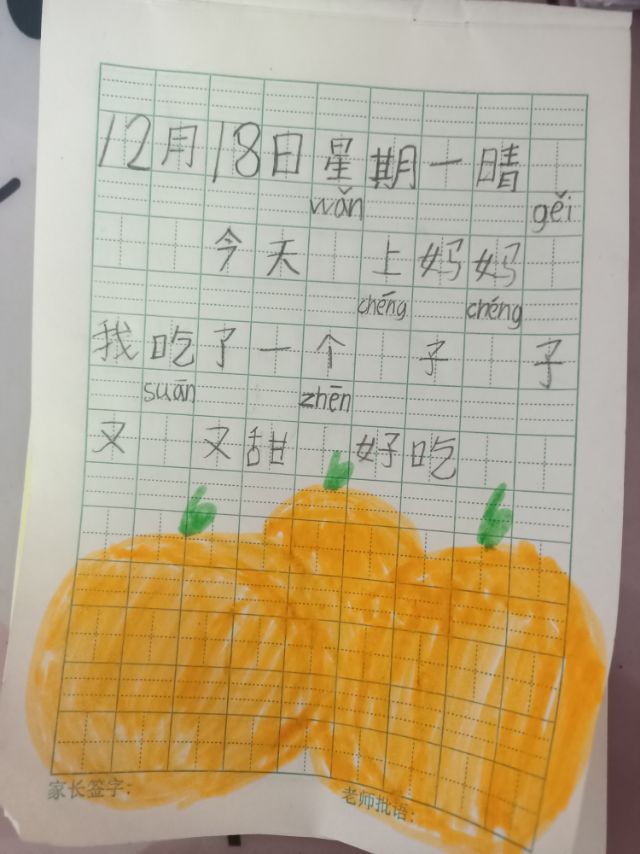 12月18日星期一晴
wǎn gěi
今天 上妈妈
chéng chéng
我吃了一个 子 子
suān zhēn
又 又甜 好吃
家长签字：
老师批语：